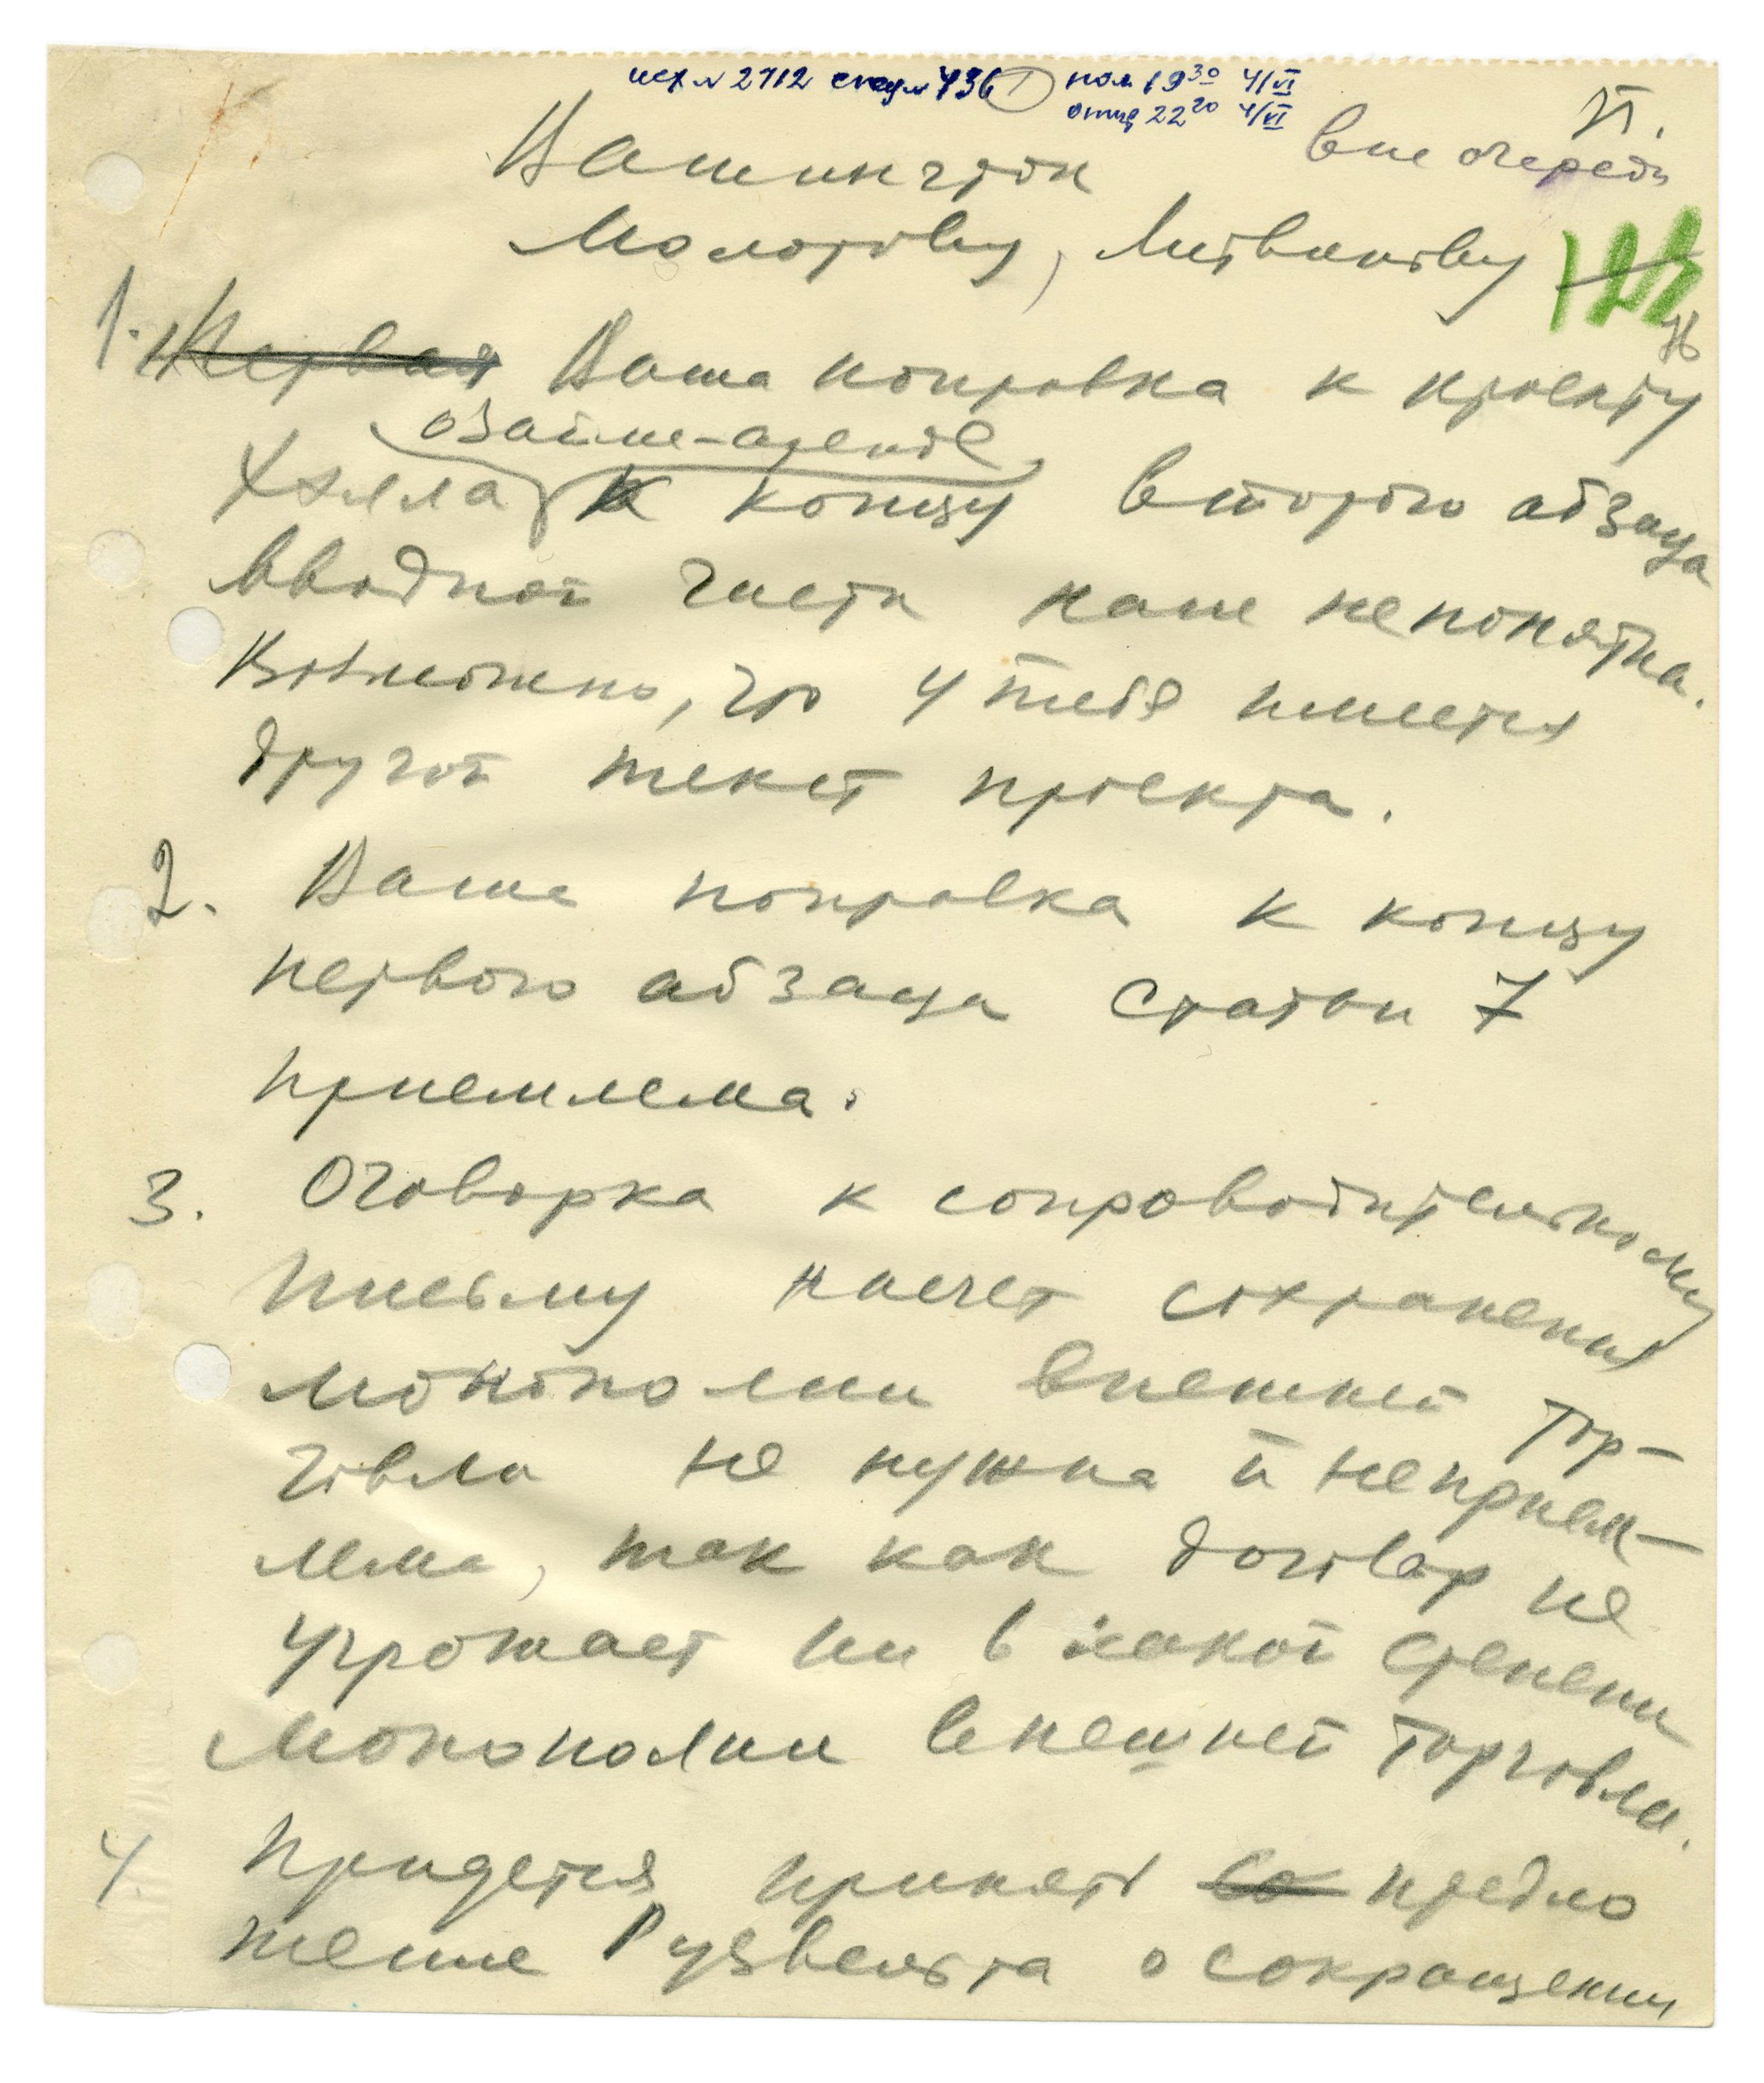 исх № 2712 спец № 736 (1) пол 19³⁰ 4/VI
отпр 22²⁰ 4/VI
П.
вне очереди
Вашингтон
Молотову, Литвинову
1. Первая Ваша поправка к проекту
о взаимн-аренде
Хэлла к концу второго абзаца
вводной части нам непонятна.
Возможно, что у тебя имеется
другой текст проекта.
2. Ваша поправка к концу
первого абзаца статьи 7
приемлема.
3. Оговорка к сопроводительному
письму насчет сохранения
монополии внешней тор-
говли не нужна и неприем-
лема, так как договор не
угрожает ни в какой степени
монополии внешней торговли.
4 Придется принять со предло
жение Рузвельта о сокращении